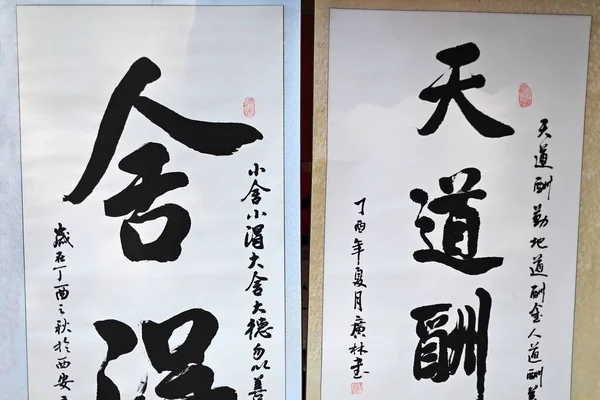 小舍小淂大舍大德勿以善
舍淂
歲在丁酉之秋於西安
天道酬勤地道酬金人道酬善
天道酬
丁酉年夏月廣林書